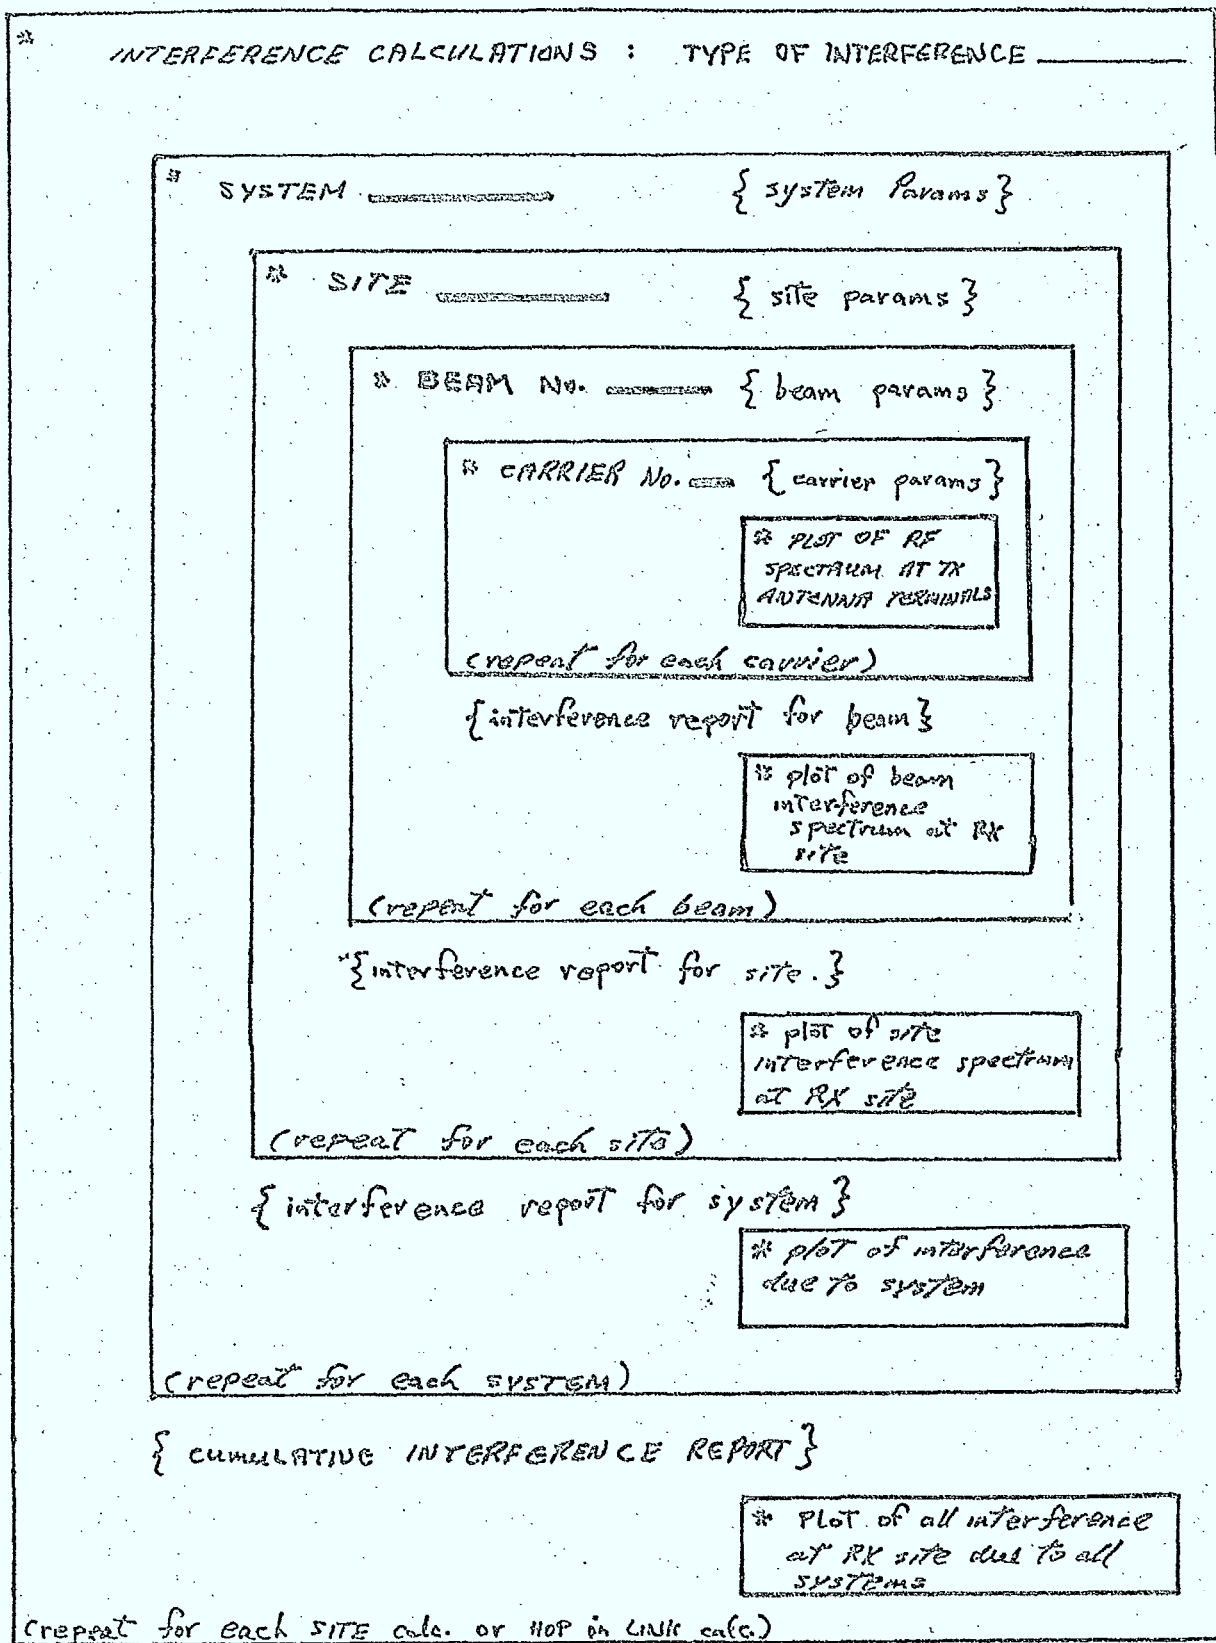 * INTERFERENCE CALCULATIONS : TYPE OF INTERFERENCE
* SYSTEM {system Params}
* SITE {site params}
* BEAM No. {beam params}
* CARRIER No. {carrier params}
* PLOT OF RF
SPECTRUM AT TX
ANTENNA TERMINALS
(repeat for each carrier)
{interference report for beam}
* plot of beam
interference
spectrum at RX
site
(repeat for each beam)
*{interference report for site.}
* plot of site
interference spectrum
at RX site
(repeat for each site)
{interference report for system}
* plot of interference
due to system
(repeat for each SYSTEM)
{CUMULATIVE INTERFERENCE REPORT}
* PLOT of all interference
at RX site due to all
systems
(repeat for each SITE calc. or HOP in LINK calc.)